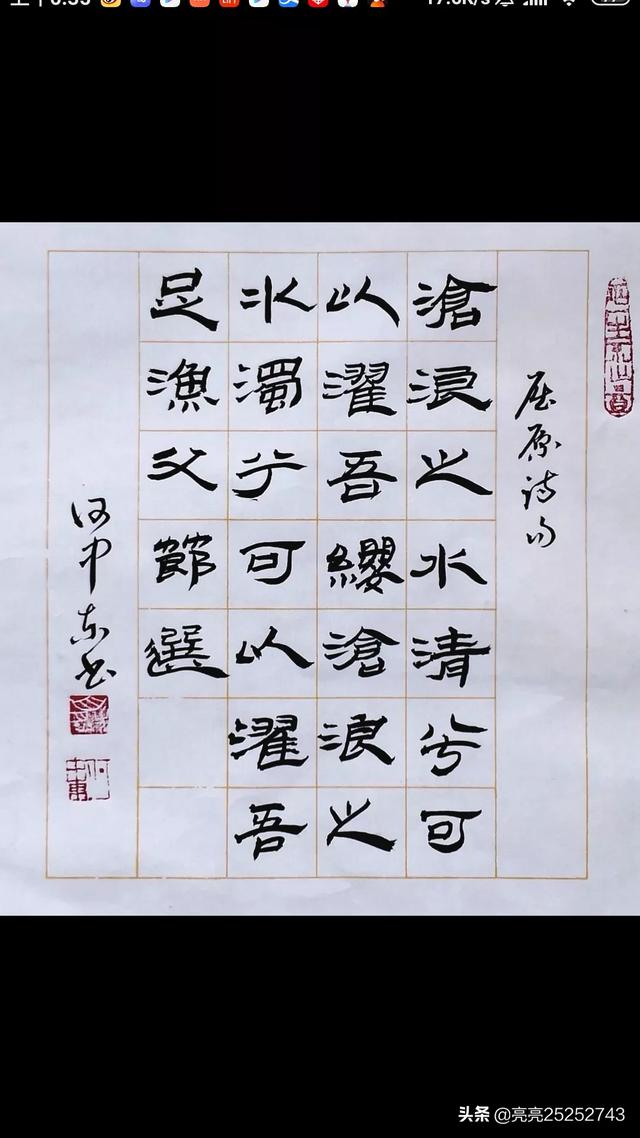 屈原诗句
滄浪之水清兮可
以濯吾纓滄浪之
水濁兮可以濯吾
足漁父節選
何中东书
何中東
头条 @亮亮25252743